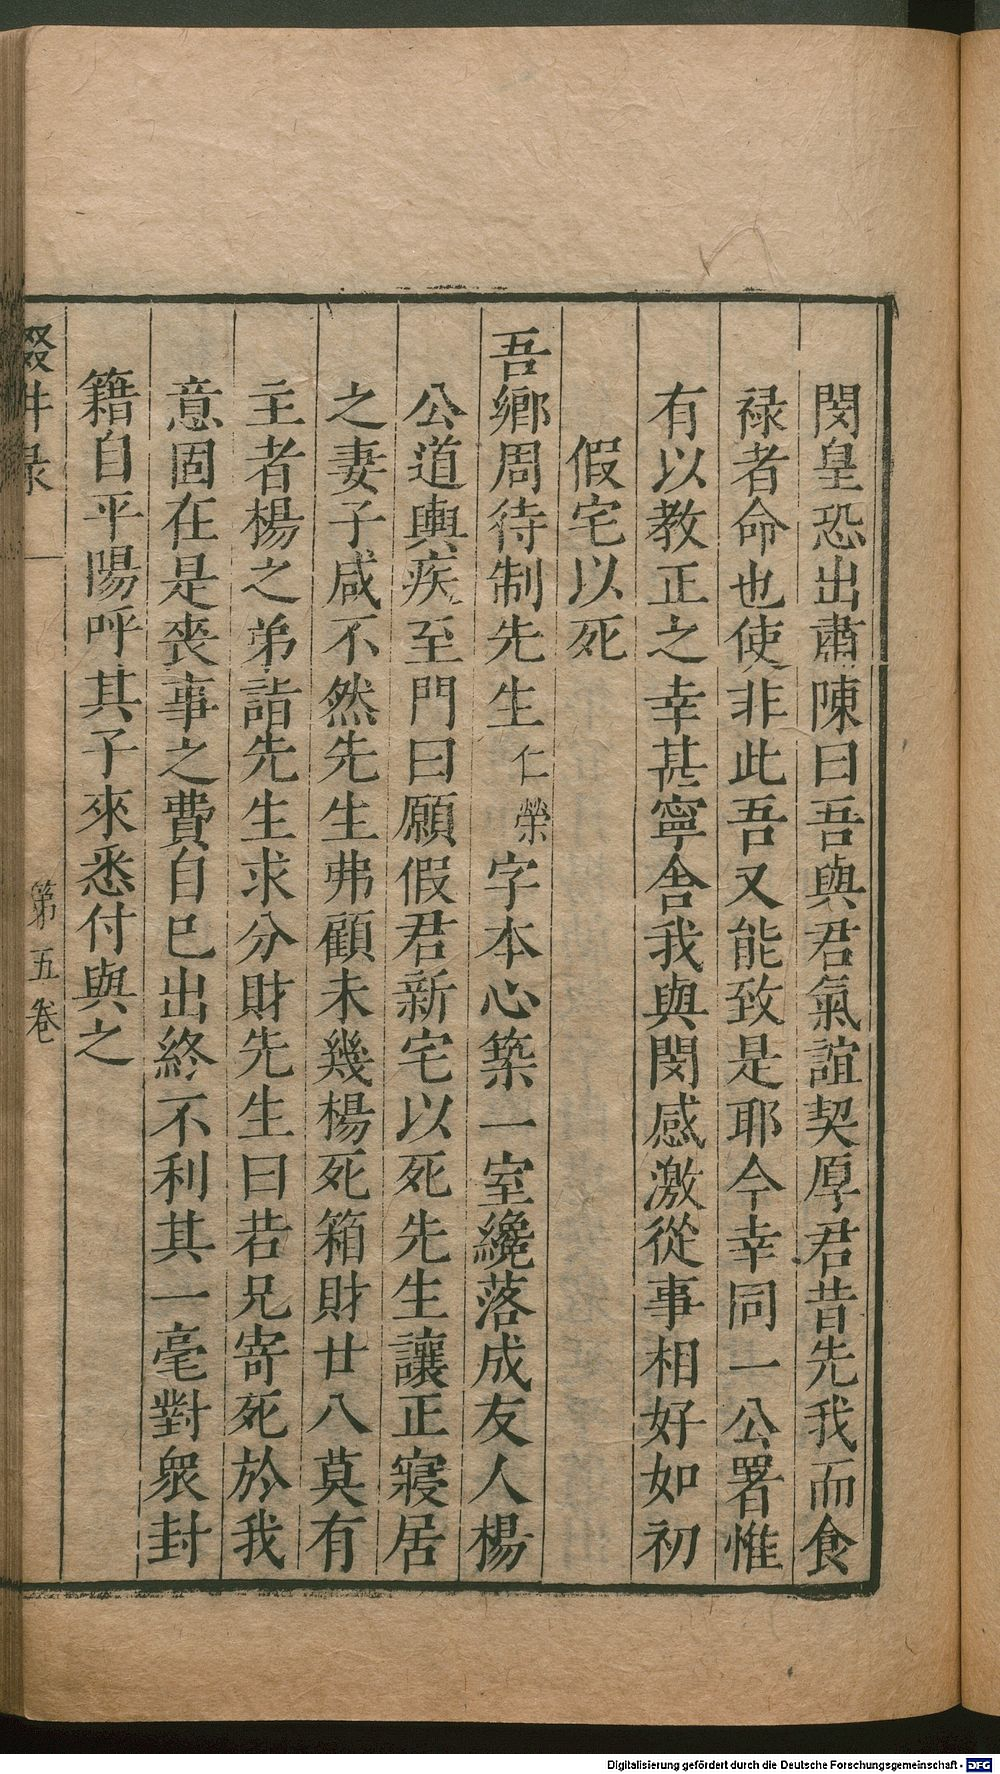 閔皇恐出肅陳曰吾與君氣誼契厚君昔先我而食
禄者命也使非此吾又能致是耶今幸同一公署惟
有以教正之幸甚寧舍我與閔感激從事相好如初
假宅以死
吾鄉周待制先生仁榮字本心築一室纔落成友人楊
公道輿疾至門曰願假君新宅以死先生讓正寢居
之妻子咸不然先生弗顧未幾楊死箱財廿八莫有
主者楊之弟詣先生求分財先生曰若兄寄死於我
意固在是喪事之費自已出終不利其一毫對衆封
籍自平陽呼其子來悉付與之
輟井录 第五卷
Digitalisierung gefördert durch die Deutsche Forschungsgemeinschaft - DFG